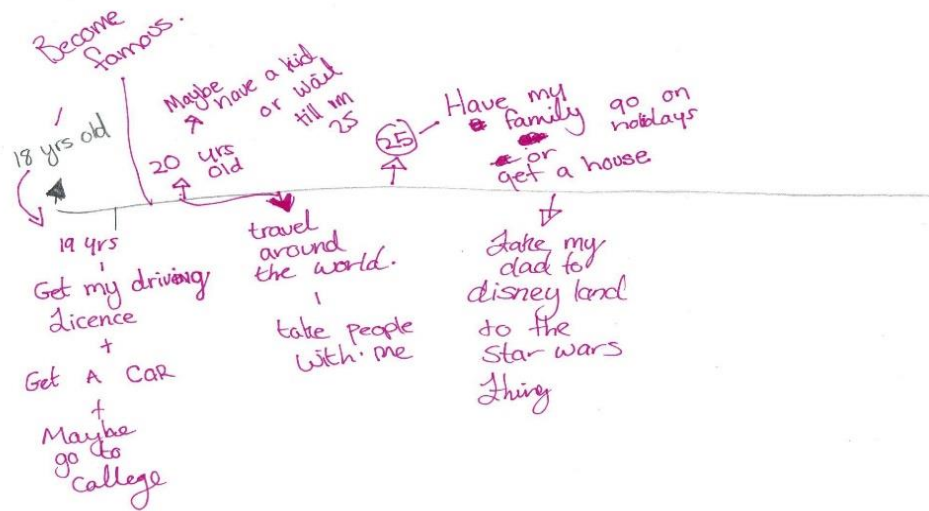 Become
famous.
18 yrs old
Maybe
have a kid
or wait
till im
25
20 yrs
old
25
Have my
family go on
holidays
or
get a house
19 yrs
Get my driving
Licence
+
Get A CaR
+
Maybe
go to
callege
travel
around
the world.
take people
with me
take my
dad to
disney land
to the
Star wars
thing